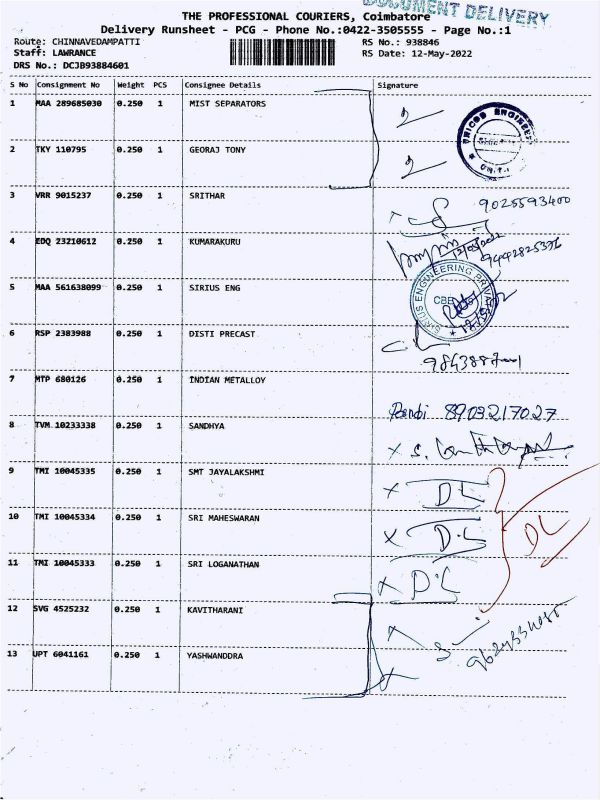 DOCUMENT DELIVERY
THE PROFESSIONAL COURIERS, Coimbatore
Delivery Runsheet - PCG - Phone No.:0422-3505555 - Page No.:1
Route: CHINNAVEDAMPATTI RS No.: 938846
Staff: LAWRANCE RS Date: 12-May-2022
DRS No.: DCJB93884601
S No Consignment No Weight PCS Consignee Details Signature
1 MAA 289685030 0.250 1 MIST SEPARATORS
2 TKY 110795 0.250 1 GEORAJ TONY
3 VRR 9015237 0.250 1 SRITHAR
9025593400
4 EDQ 23210612 0.250 1 KUMARAKURU
5 MAA 561638099 0.250 1 SIRIUS ENG
SIRIUS ENGINEERING CBE
6 RSP 2383988 0.250 1 DISTI PRECAST
7 MTP 680126 0.250 1 INDIAN METALLOY
8903217027
8 TVM 10233338 0.250 1 SANDHYA
9 TMI 10045335 0.250 1 SMT JAYALAKSHMI
DL
10 TMI 10045334 0.250 1 SRI MAHESWARAN
D.L DL
11 TMI 10045333 0.250 1 SRI LOGANATHAN
D.L
12 SVG 4525232 0.250 1 KAVITHARANI
13 UPT 6041161 0.250 1 YASHWANDDRA